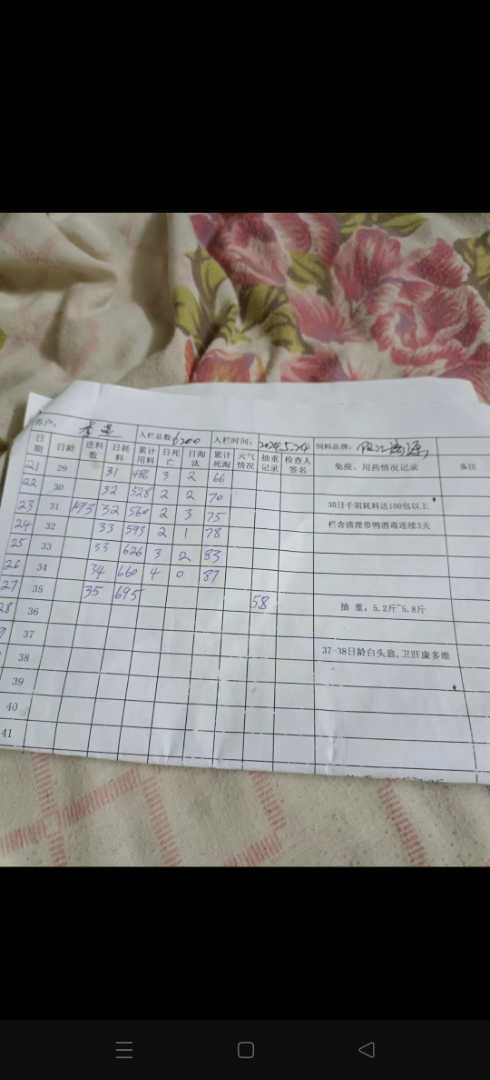 养户： 入栏总数 6200 入栏时间： 2024.5.24 饲料品牌：
日期 日龄 进料数 日耗料 累计用料 日死亡 日淘汰 累计死淘 天气情况 抽重记录 检查人签名 免疫、用药情况记录 备注
21 29 31 3 2 66
22 30 32 528 2 2 70 30日千羽耗料达100包以上
23 31 193 32 560 2 3 75 栏舍清理带鸭消毒连续3天
24 32 33 593 2 1 78
25 33 33 626 3 2 83
26 34 34 660 4 0 87
27 35 35 695 58 抽重：5.2斤~5.8斤
28 36
37 37-38日龄白头翁、卫肝康多维
38
39
40
41